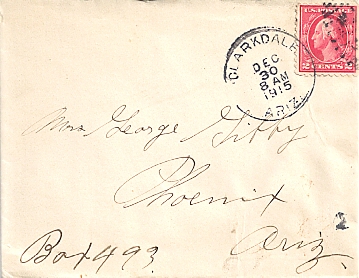 U.S. POSTAGE
2 CENTS 2
CLARKDALE
DEC
30
8 AM
1915
ARIZ.
Mrs George Gibby
Phoenix
Ariz.
Box 493